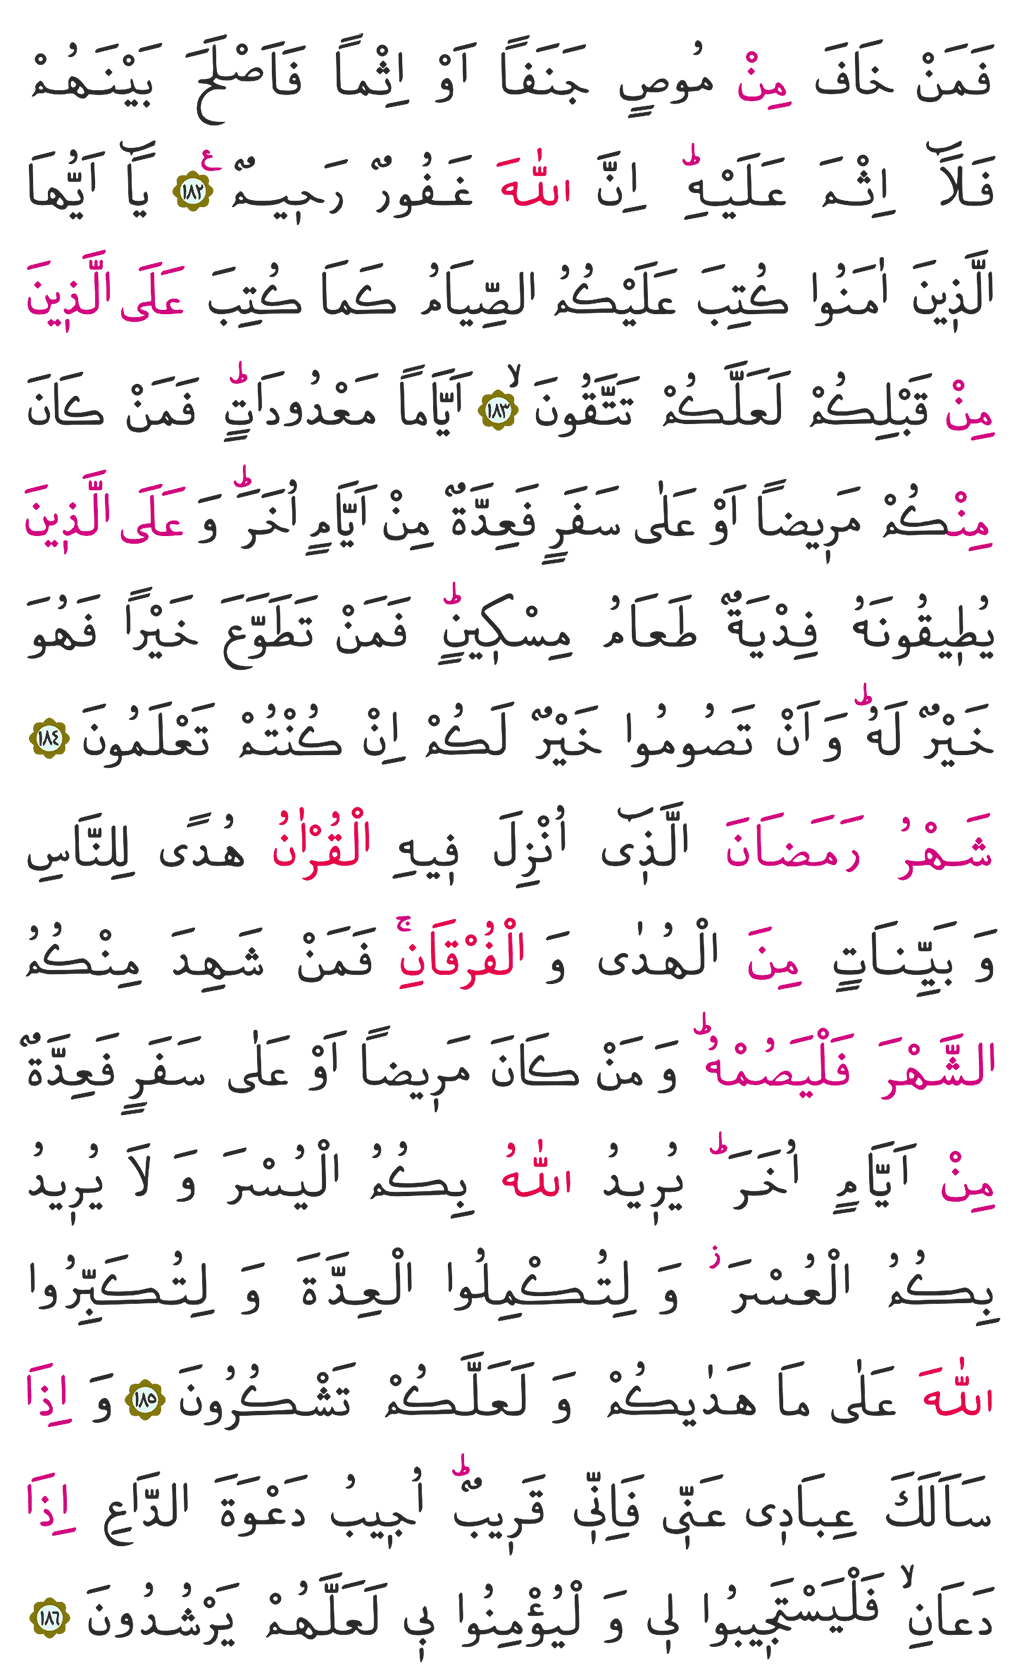 فَمَنْ خَافَ مِنْ مُوصٍ جَنَفًا اَوْ اِثْمًا فَاَصْلَحَ بَيْنَهُمْ
فَلَٓا اِثْمَ عَلَيْهِۜ اِنَّ اللّٰهَ غَفُورٌ رَحٖيمٌ ﴿١٨٢﴾ ع يَٓا اَيُّهَا
الَّذٖينَ اٰمَنُوا كُتِبَ عَلَيْكُمُ الصِّيَامُ كَمَا كُتِبَ عَلَى الَّذٖينَ
مِنْ قَبْلِكُمْ لَعَلَّكُمْ تَتَّقُونَۙ ﴿١٨٣﴾ اَيَّامًا مَعْدُودَاتٍؕ فَمَنْ كَانَ
مِنْكُمْ مَرٖيضًا اَوْ عَلٰى سَفَرٍ فَعِدَّةٌ مِنْ اَيَّامٍ اُخَرَؕ وَ عَلَى الَّذٖينَ
يُطٖيقُونَهُ فِدْيَةٌ طَعَامُ مِسْكٖينٍؕ فَمَنْ تَطَوَّعَ خَيْرًا فَهُوَ
خَيْرٌ لَهُؕ وَ اَنْ تَصُومُوا خَيْرٌ لَكُمْ اِنْ كُنْتُمْ تَعْلَمُونَ ﴿١٨٤﴾
شَهْرُ رَمَضَانَ الَّذٖٓى اُنْزِلَ فٖيهِ الْقُرْاٰنُ هُدًى لِلنَّاسِ
وَ بَيِّنَاتٍ مِنَ الْهُدٰى وَ الْفُرْقَانِۚ فَمَنْ شَهِدَ مِنْكُمُ
الشَّهْرَ فَلْيَصُمْهُؕ وَ مَنْ كَانَ مَرٖيضًا اَوْ عَلٰى سَفَرٍ فَعِدَّةٌ
مِنْ اَيَّامٍ اُخَرَؕ يُرٖيدُ اللّٰهُ بِكُمُ الْيُسْرَ وَ لَا يُرٖيدُ
بِكُمُ الْعُسْرَؗ وَ لِتُكْمِلُوا الْعِدَّةَ وَ لِتُكَبِّرُوا
اللّٰهَ عَلٰى مَا هَدٰيكُمْ وَ لَعَلَّكُمْ تَشْكُرُونَ ﴿١٨٥﴾ وَ اِذَا
سَاَلَكَ عِبَادٖى عَنّٖى فَاِنّٖى قَرٖيبٌؕ اُجٖيبُ دَعْوَةَ الدَّاعِ اِذَا
دَعَانِۙ فَلْيَسْتَجٖيبُوا لٖى وَ لْيُؤْمِنُوا بٖى لَعَلَّهُمْ يَرْشُدُونَ ﴿١٨٦﴾